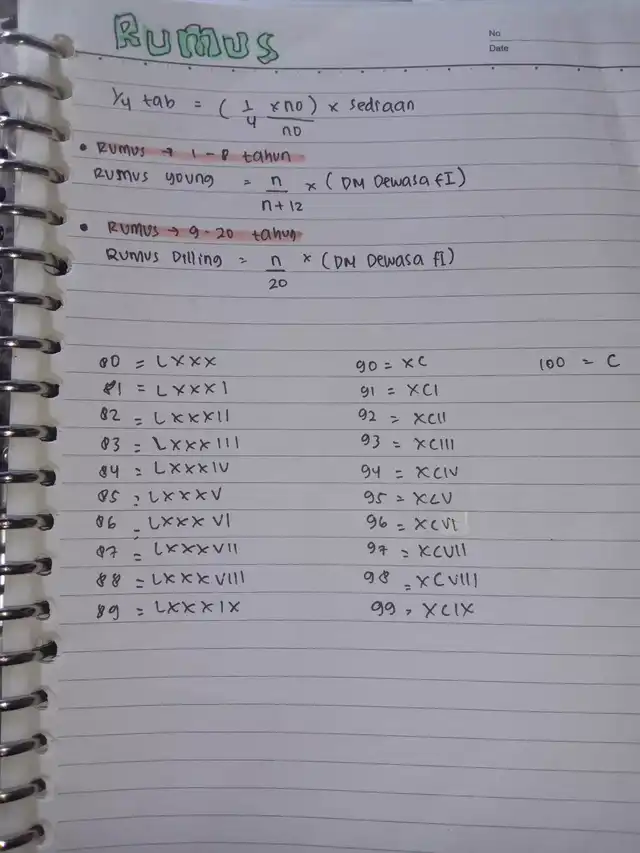 RUMUS
No
Date
1/4 tab = (1/4 x no)/no x sediaan
• Rumus → 1-8 tahun
Rumus young = n/n+12 x (DM Dewasa FI)
• Rumus → 9-20 tahun
Rumus Dilling = n/20 x (DM Dewasa FI)
80 = LXXX 90 = XC 100 = C
81 = LXXXI 91 = XCI
82 = LXXXII 92 = XCII
83 = LXXXIII 93 = XCIII
84 = LXXXIV 94 = XCIV
85 = LXXXV 95 = XCV
86 = LXXXVI 96 = XCVI
87 = LXXXVII 97 = XCVII
88 = LXXXVIII 98 = XCVIII
89 = LXXXIX 99 = XCIX